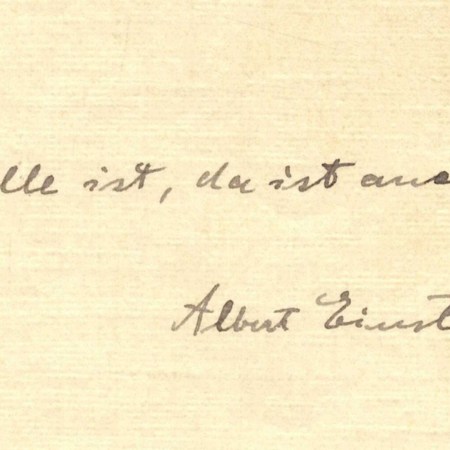 lle ist, da ist auc
Albert Einst